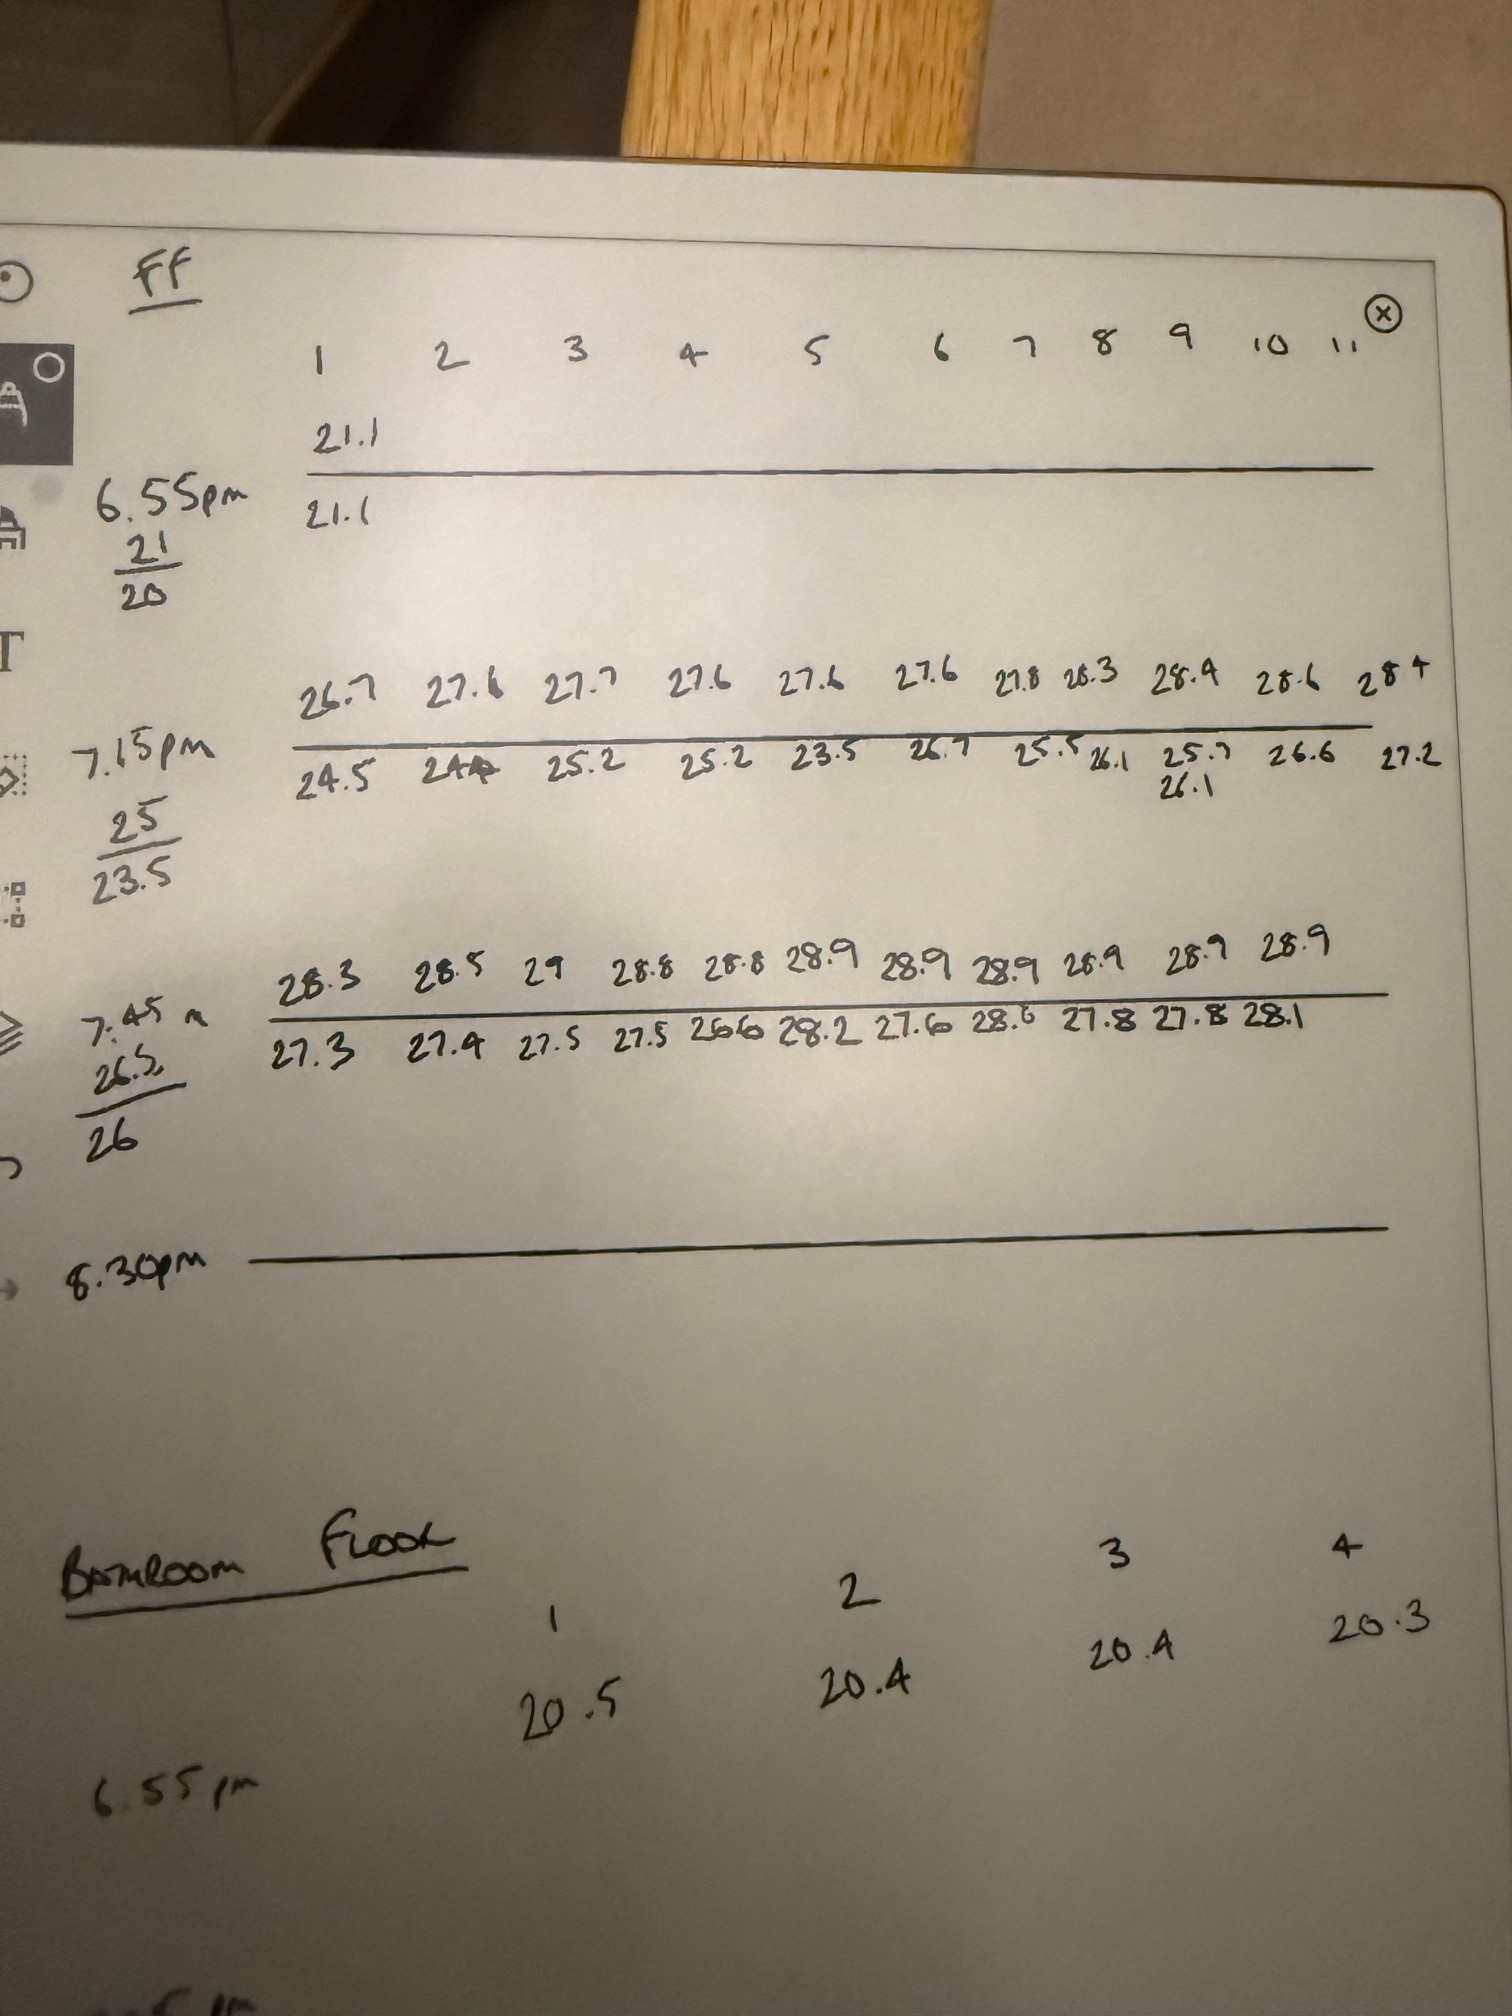 FF
1 2 3 4 5 6 7 8 9 10 11
21.1
6.55pm
21.1
21
20
26.7 27.6 27.7 27.6 27.6 27.6 27.8 28.3 28.4 28.6 28.4
7.15pm
24.5 25.2 25.2 23.5 26.7 25.5 26.1 25.7 26.6 27.2
26.1
25
23.5
28.3 28.5 29 28.8 28.8 28.9 28.9 28.9 28.9 28.9 28.9
7.45
27.3 27.4 27.5 27.5 26.6 28.2 27.6 27.8 27.8 28.1
26.5
26
8.30pm
BATHROOM FLOOR
1 2 3 4
20.5 20.4 20.4 20.3
6.55pm